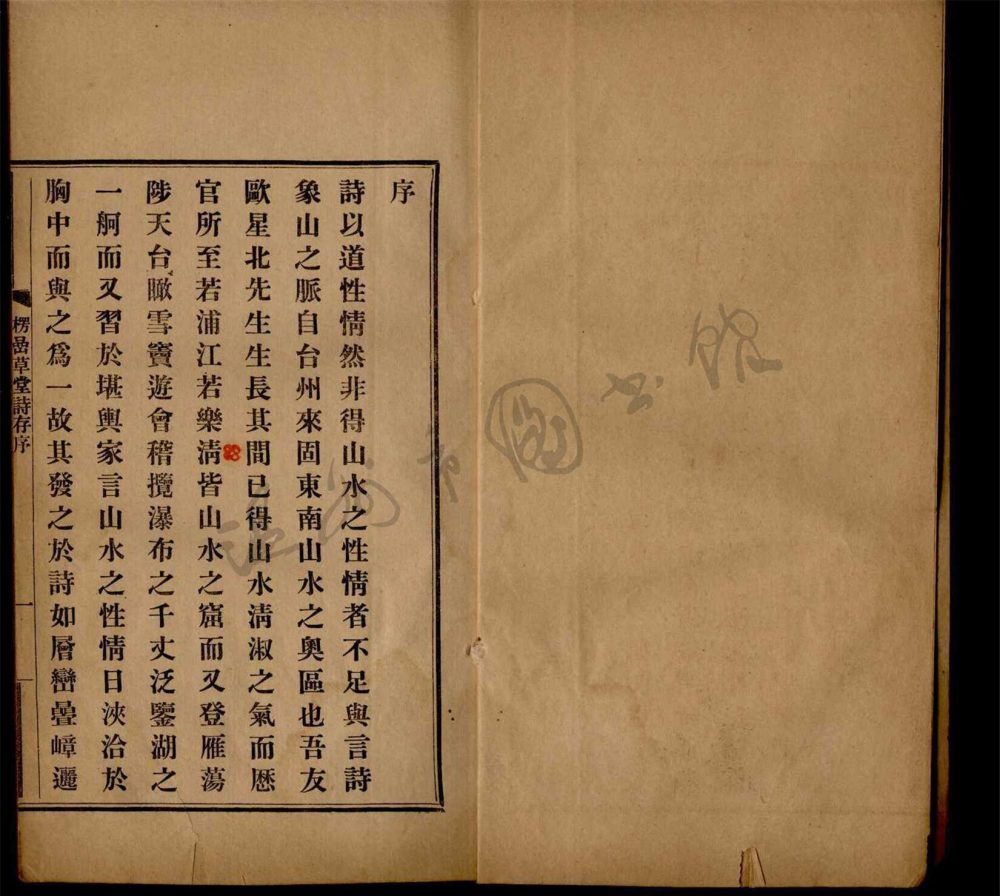 序
詩以道性情然非得山水之性情者不足與言詩
象山之脈自台州來固東南山水之奧區也吾友
歐星北先生生長其間已得山水淸淑之氣而歷
官所至若浦江若樂淸皆山水之窟而又登雁蕩
陟天台瞰雪竇遊會稽攬瀑布之千丈泛鑒湖之
一舸而又習於堪輿家言山水之性情日浹洽於
胸中而與之爲一故其發之於詩如層巒疊嶂邐
楞嵒草堂詩存序
一
温州市圖书館